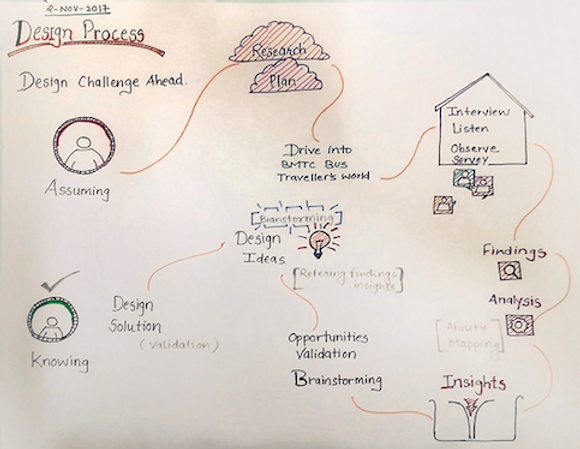 8-NOV-2017
Design Process
Design Challenge Ahead.
Research
Plan
Assuming
Drive into
BMTC Bus
Traveller's world
Interview
Listen
Observe
Servey
Findings
Analysis
[Ativity
Mapping]
Insights
Opportunities
Validation
Brainstorming
[Branstorming]
Design
Ideas
[Refering findings
insights]
Design
Solution
(Validation)
Knowing